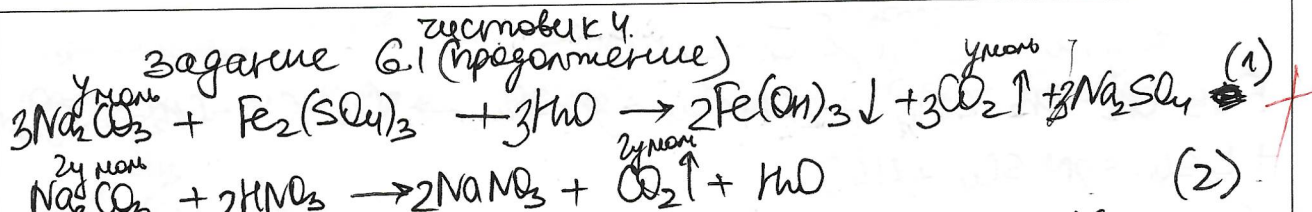 чистовик 4.
задание 6.1 (продолжение)
y моль y моль
3Na₂CO₃ + Fe₂(SO₄)₃ + 3H₂O → 2Fe(OH)₃↓ + 3CO₂↑ + 3Na₂SO₄ (1)
2y моль 2y моль
Na₂CO₃ + 2HNO₃ → 2NaNO₃ + CO₂↑ + H₂O (2)